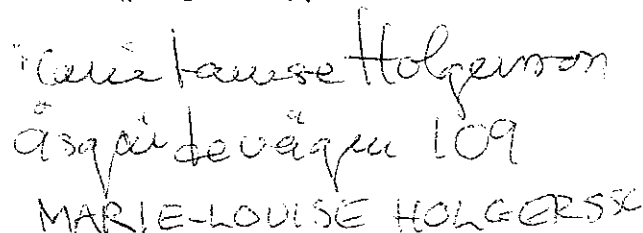 Marie Louise Holgersson
åsgårdevägen 109
MARIE-LOUISE HOLGERSSO